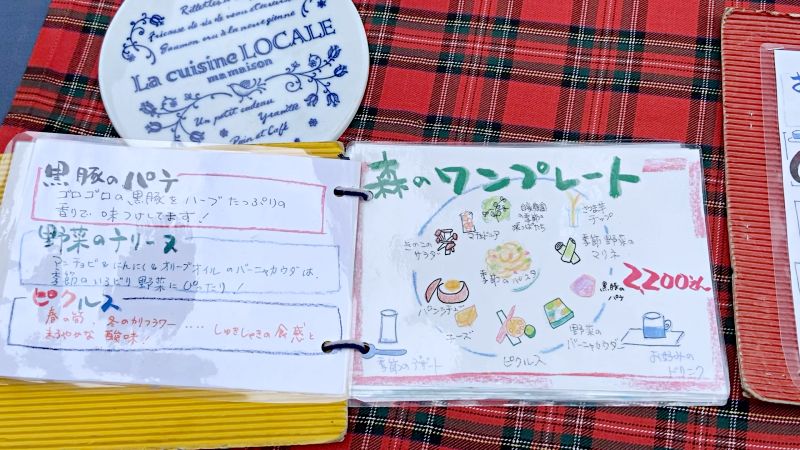 La cuisine LOCALE
ma maison
Un petit cadeau
Pain et Café
黒豚のパテ
ゴロゴロの黒豚をハーブたっぷりの
香りで味つけしてます！
野菜のテリーヌ
アンチョビ&にんにく&オリーブオイルのバーニャカウダは、
季節のいろどり野菜にぴったり！
ピクルス
春の筍、冬のカリフラワー……しゃきしゃきの食感と
まろやかな酸味！
森のワンプレート
さつま芋
チップ
きのこの
サラダ
季節野菜の
マリネ
季節のパスタ
2,200
黒豚の
パテ
パンシチュー
チーズ
ピクルス
野菜の
バーニャカウダー
季節のデザート
お好みの
ドリンク